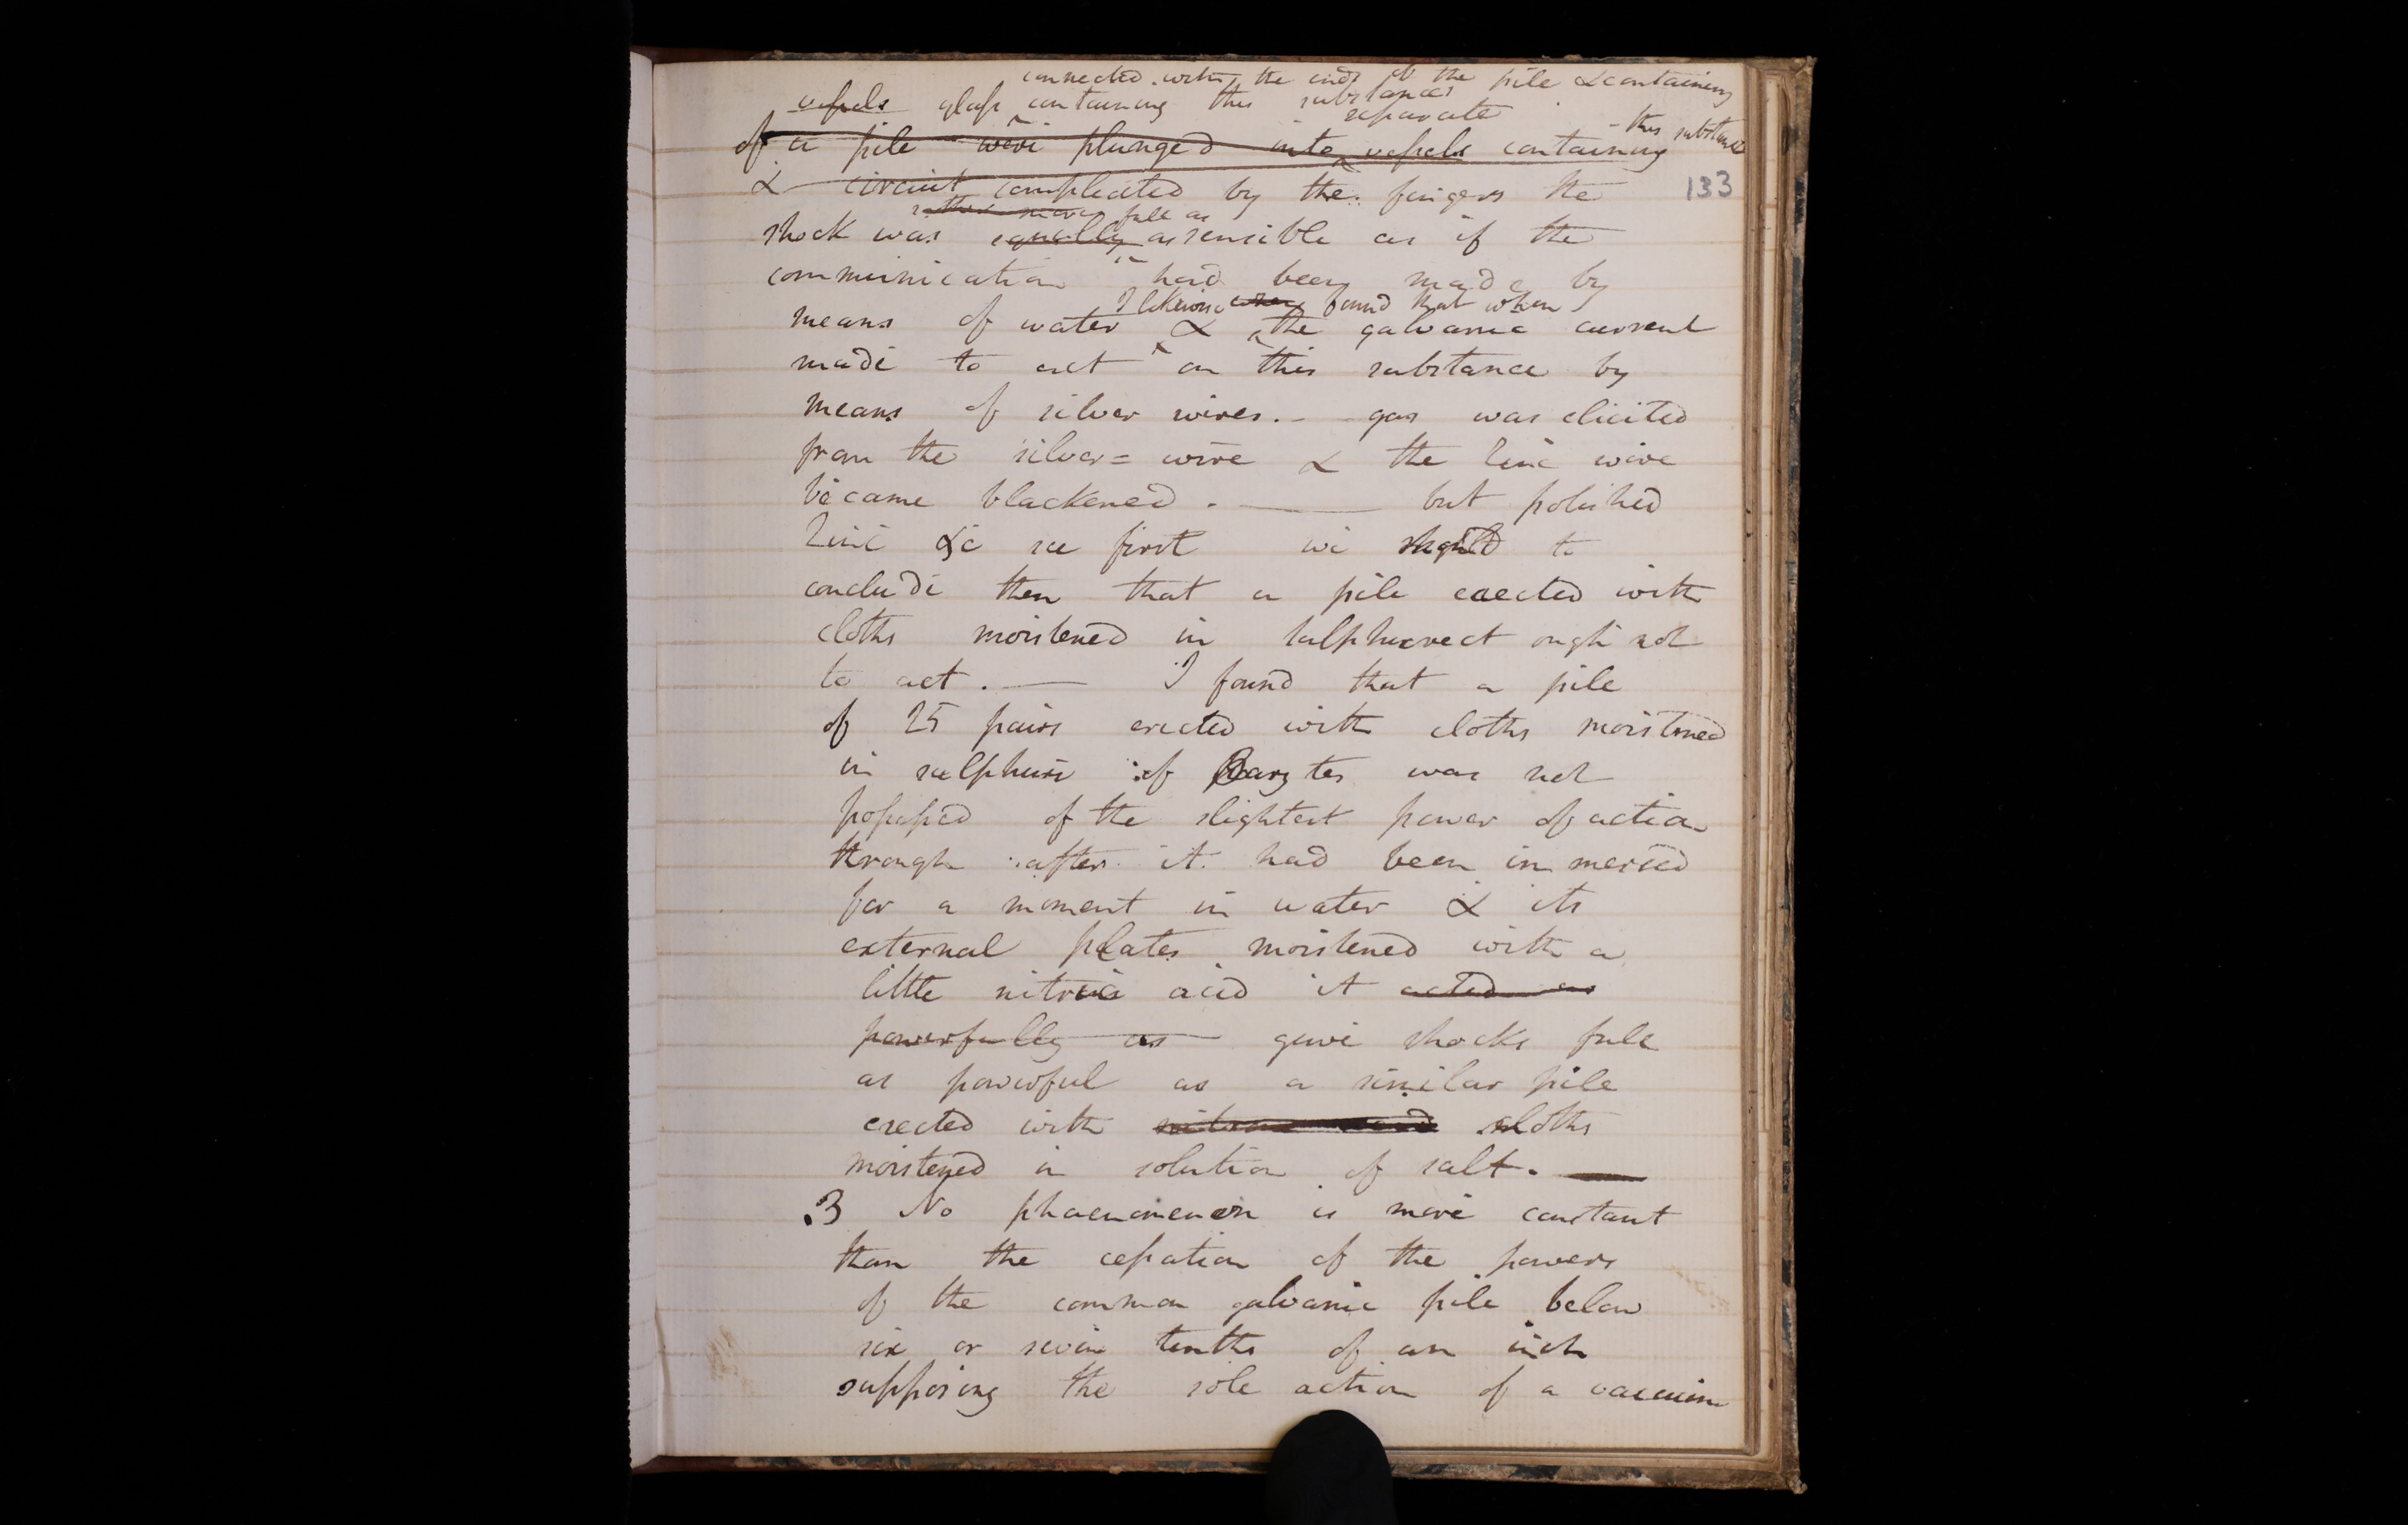 connected with the ends of the pile & containing
vessels glass containing this substances
separate
this substance
of a pile were plunged into vessels containing
133
& circuit compleated by the fingers the
rather more full as
shock was equally as sensible as if the
communication had been made by
I likewise when found that when
means of water & the galvanic current
made to act on this substance by
means of silver wires. – gas was elicited
from the silver = wire & the zinc wire
became blackened. — but polished
Zinc &c see first we to
conclude then that a pile erected with
cloths moistened in sulphuret ough not
to act. — I found that a pile
of 25 pairs erected with cloths moistened
in sulphure of Barytes was not
possessed of the slightest power of action
through after it had been immersed
for a moment in water & its
external plates moistened with a
little nitric acid it acted as
powerfully as gave shocks full
as powerful as a similar pile
erected with nitrous acid cloths
moistened in solution of salt. —
.3 No phaenomenon is more constant
than the cessation of the powers
of the common galvanic pile below
six or seven tenths of an inch
supposing the sole action of a vacuum